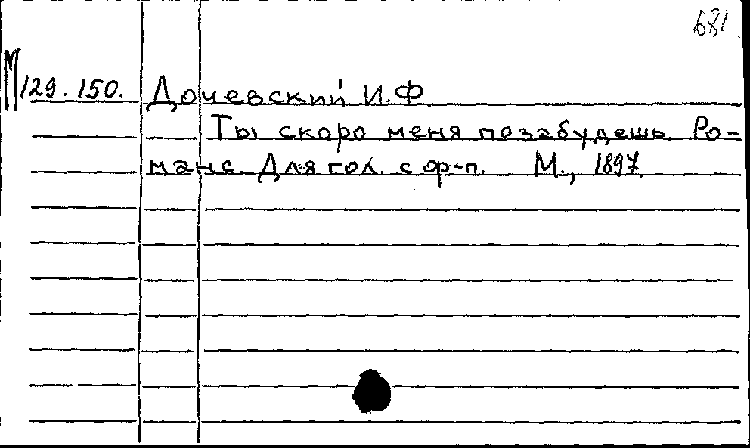 681
М 129.150. Дочевский И.Ф.
Ты скоро меня позабудешь. Ро-
манс. Для гол. с ф-п. М., 1897.